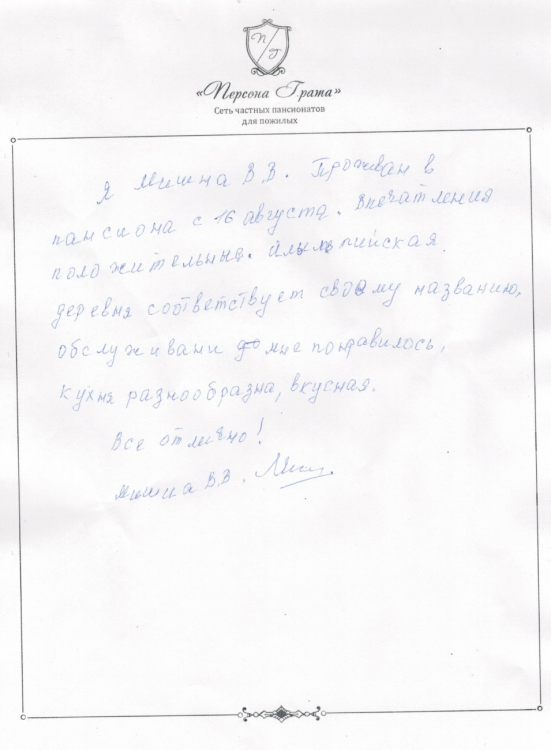 П/Г
«Персона Грата»
Сеть частных пансионатов
для пожилых
Я Мишна В.В. Прожван в
пансиона с 16 августа. Впечатления
положительные. Альпийская
деревня соответствует своему названию,
обслуживани до мне понравилось,
кухня разнообразна, вкусная.
Все отлично!
Мишна В.В.